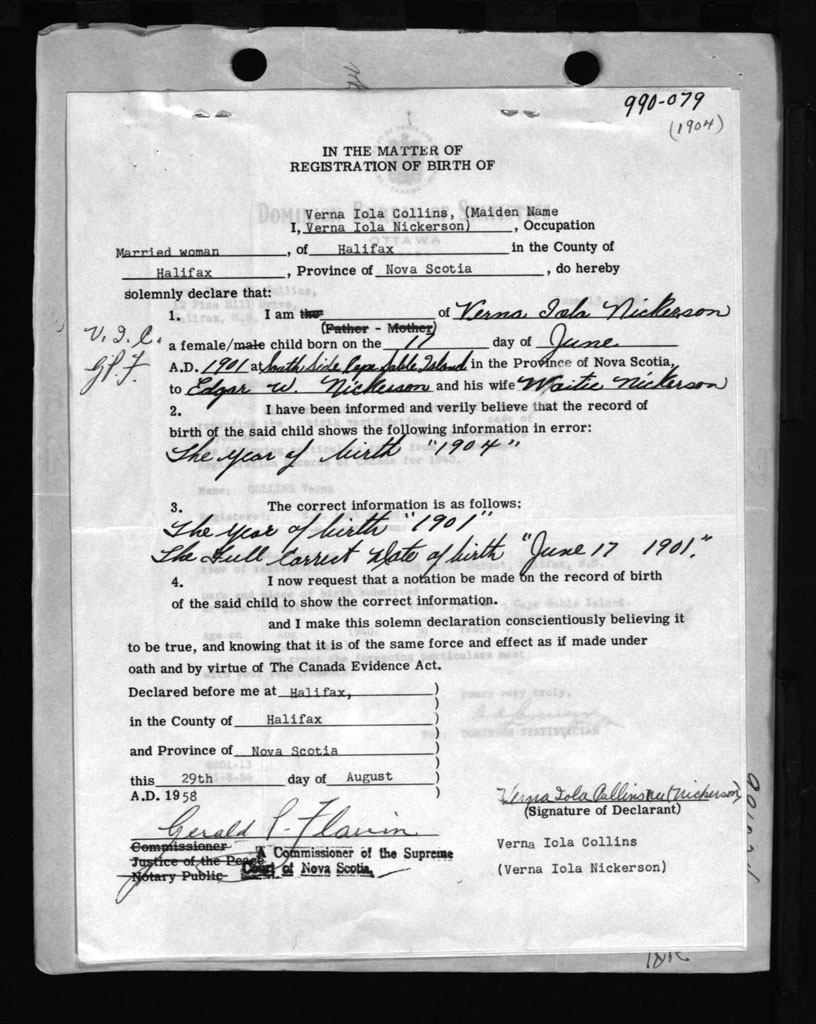 990-079
(1904)
IN THE MATTER OF
REGISTRATION OF BIRTH OF
Verna Iola Collins, (Maiden Name
I, Verna Iola Nickerson) , Occupation
Married woman , of Halifax in the County of
Halifax , Province of Nova Scotia , do hereby
solemnly declare that:
1. I am the of Verna Iola Nickerson
(Father - Mother)
V. I. C. a female/male child born on the 17 day of June
G.P.F. A.D. 1901 at South Side Cape Sable Island in the Province of Nova Scotia,
to Edgar W. Nickerson and his wife Waitie Nickerson
2. I have been informed and verily believe that the record of
birth of the said child shows the following information in error:
The year of birth "1904"
3. The correct information is as follows:
The year of birth "1901"
The Full Correct Date of birth "June 17 1901."
4. I now request that a notation be made on the record of birth
of the said child to show the correct information.
and I make this solemn declaration conscientiously believing it
to be true, and knowing that it is of the same force and effect as if made under
oath and by virtue of The Canada Evidence Act.
Declared before me at Halifax, )
in the County of Halifax )
and Province of Nova Scotia )
this 29th day of August )
A.D. 1958
Verna Iola Collins nee (Nickerson)
(Signature of Declarant)
Gerald P. Flavin
Verna Iola Collins
Commissioner
Justice of the Peace A Commissioner of the Supreme
Notary Public Court of Nova Scotia
(Verna Iola Nickerson)